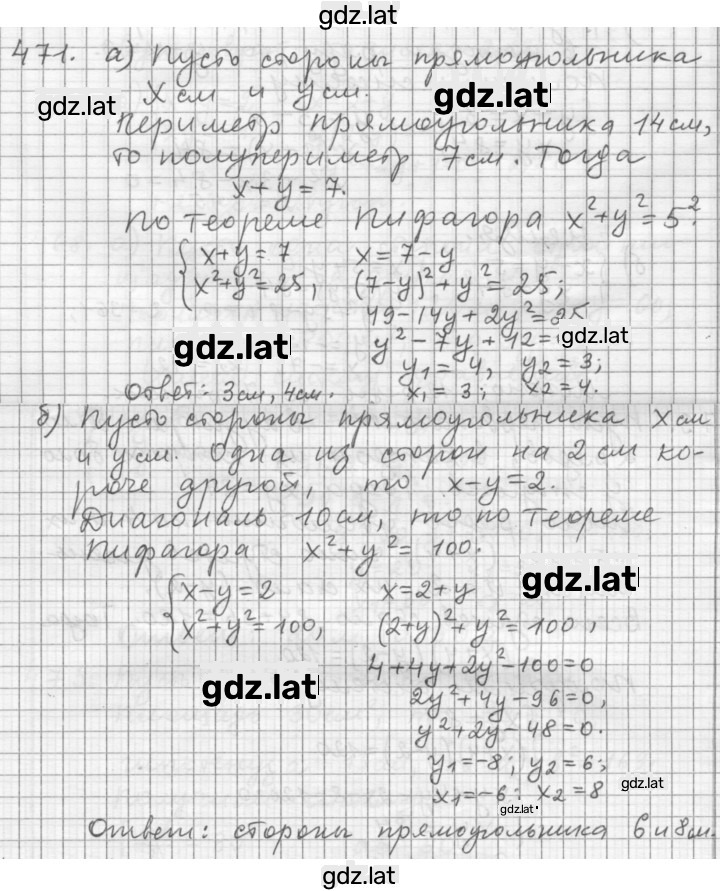 gdz.lat
471. а) Пусть стороны прямоугольника
gdz.lat
x см и y см.
gdz.lat
Периметр прямоугольника 14 см,
то полупериметр 7 см. Тогда
x+y=7.
По теореме Пифагора x²+y²=5².
{x+y=7 x=7-y
x²+y²=25, (7-y)²+y²=25;
49-14y+2y²=25
gdz.lat
y²-7y+12=
gdz.lat
y₁=4, y₂=3;
Ответ: 3см, 4см. x₁=3; x₂=4.
б) Пусть стороны прямоугольника x см
и y см. Одна из сторон на 2 см ко-
роче другой, то x-y=2.
Диагональ 10 см, то по теореме
Пифагора x²+y²=100.
gdz.lat
{x-y=2 x=2+y
x²+y²=100, (2+y)²+y²=100,
4+4y+2y²-100=0
gdz.lat
2y²+4y-96=0,
y²+2y-48=0.
y₁=-8; y₂=6;
gdz.lat
x₁=-6; x₂=8
gdz.lat
Ответ: стороны прямоугольника 6 и 8 см.
gdz.lat